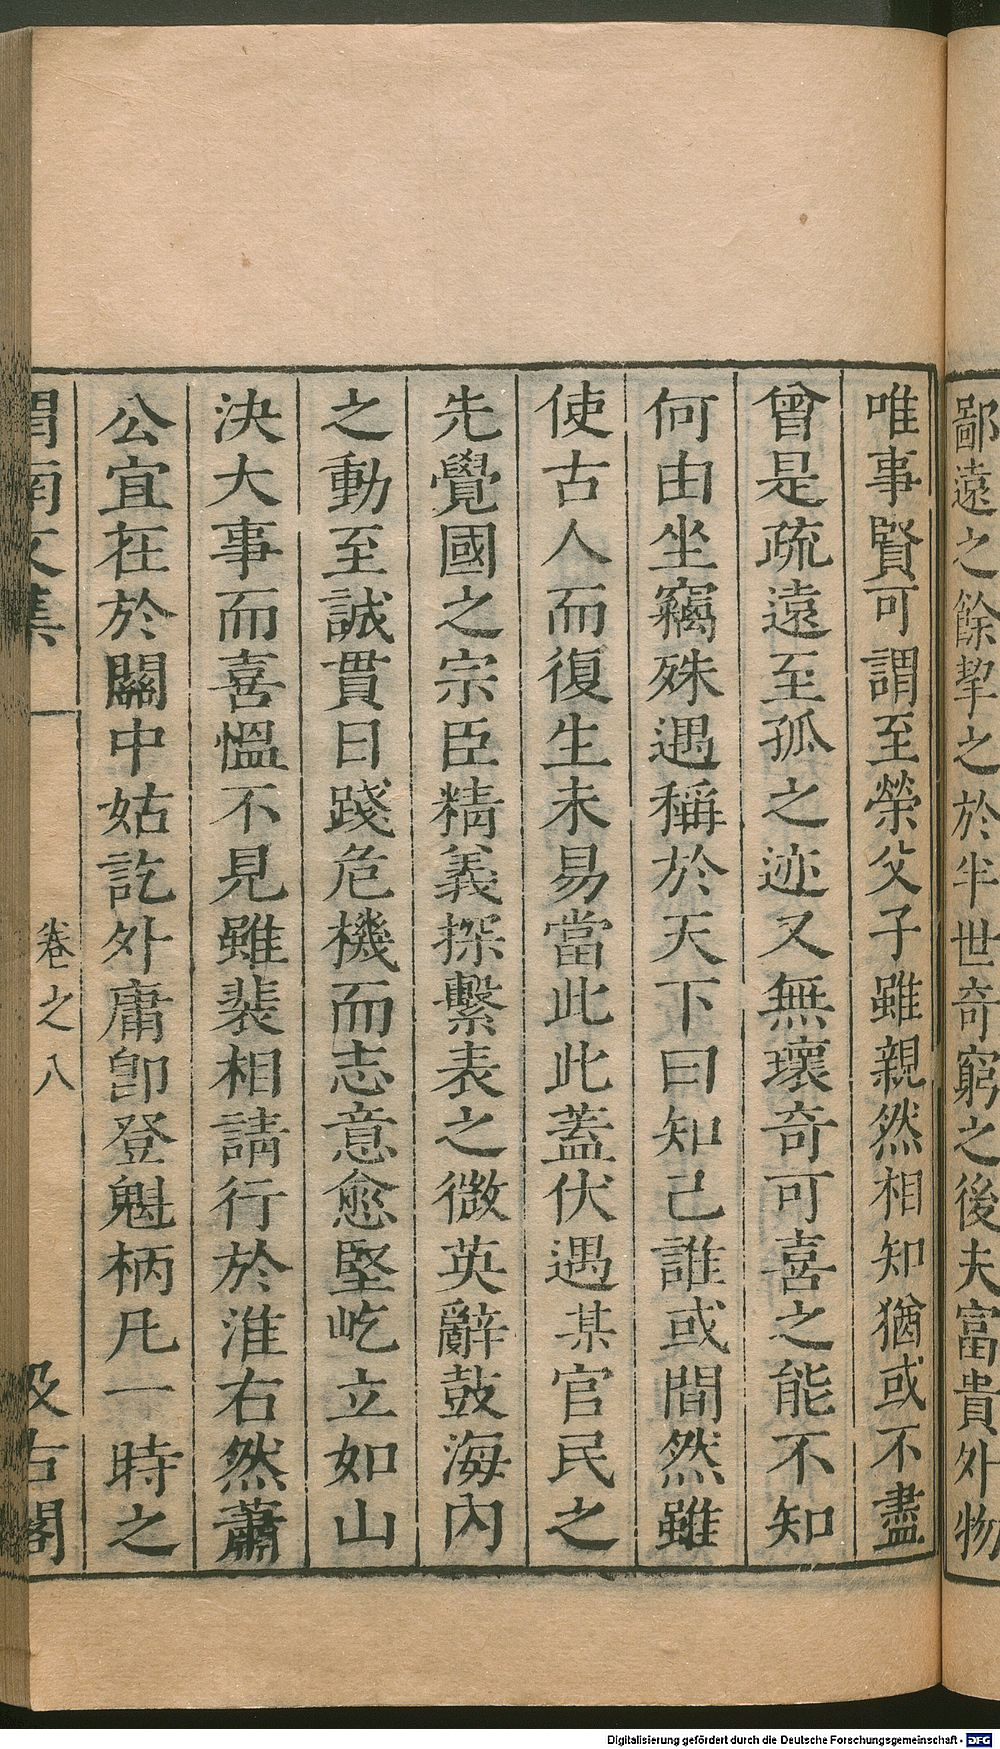 鄙遠之餘挈之於半世奇窮之後夫富貴外物
唯事賢可謂至榮父子雖親然相知猶或不盡
曾是疏遠至孤之迹又無壞奇可喜之能不知
何由坐竊殊遇稱於天下曰知己誰或間然雖
使古人而復生未易當此此蓋伏遇某官民之
先覺國之宗臣精義探繫表之微英辭鼓海內
之動至誠貫日踐危機而志意愈堅屹立如山
決大事而喜慍不見雖裴相請行於淮右然蕭
公宜在於關中姑訖外庸卽登魁柄凡一時之
渭南文集
卷之八
汲古閣
Digitalisierung gefördert durch die Deutsche Forschungsgemeinschaft - DFG